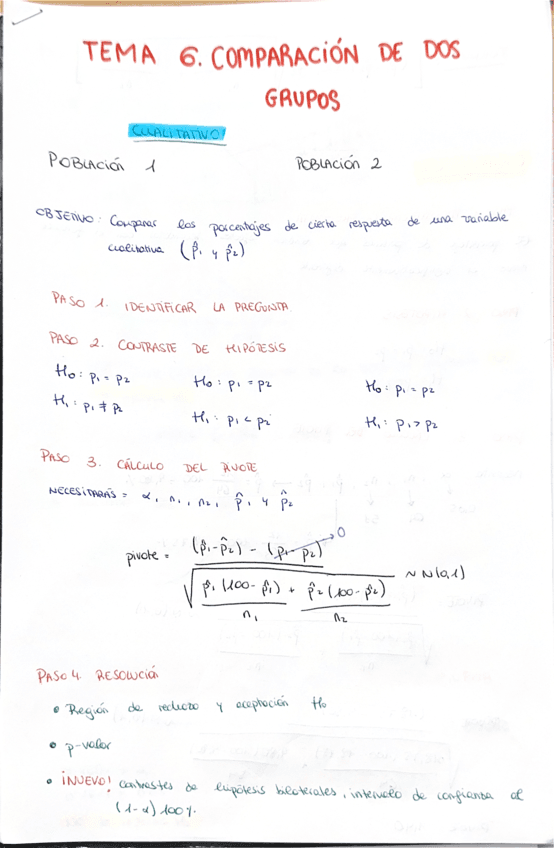 TEMA 6. COMPARACIÓN DE DOS
GRUPOS
CUALITATIVO
POBLACIÓN 1 POBLACIÓN 2
OBJETIVO: Comparar los porcentajes de cierta respuesta de una variable
cualitativa (p̂₁ y p̂₂)
PASO 1. IDENTIFICAR LA PREGUNTA
PASO 2. CONTRASTE DE HIPÓTESIS
H₀: p₁ = p₂ H₀: p₁ = p₂ H₀: p₁ = p₂
H₁: p₁ ≠ p₂ H₁: p₁ < p₂ H₁: p₁ > p₂
PASO 3. CÁLCULO DEL PIVOTE
NECESITARÁS = α, n₁, n₂, p̂₁ y p̂₂
pivote = (p̂₁-p̂₂) - (p₁-p₂) → 0
√ p̂₁(100-p̂₁) + p̂₂(100-p̂₂) ~ N(0,1)
n₁ n₂
PASO 4. RESOLUCIÓN
• Región de rechazo y aceptación H₀
• p-valor
• ¡NUEVO! contrastes de hipótesis bilaterales, intervalo de confianza al
(1-α)100%.